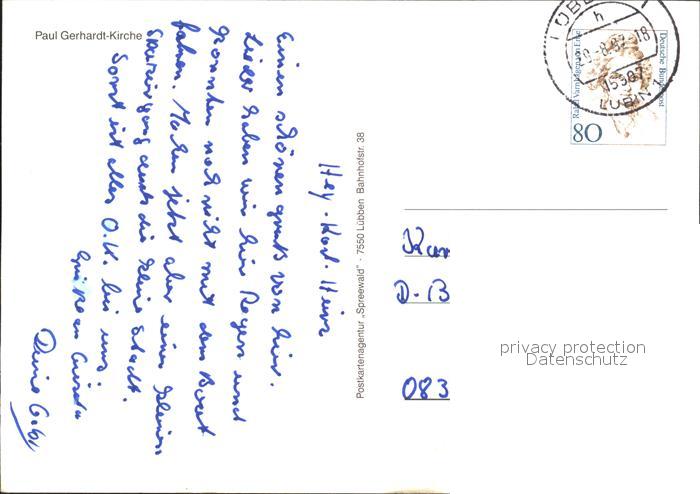 Paul Gerhardt-Kirche
Hey Karl-Heinz
Einen schönen Gruß von hier.
Leider haben wir hier Regen und
konnten noch nicht mit dem Boot
fahren. Machen jetzt aber einen kleinen
Spaziergang durch die kleine Stadt.
Sonst ist alles O.K. bei uns.
Deine
Postkartenagentur „Spreewald" · 7550 Lübben Bahnhofstr. 38
LÜBBEN
h
-18
15907
LUBIN 1
Rahel Varnhagen von Ense
Deutsche Bundespost
80
D-13
083
privacy protection
Datenschutz